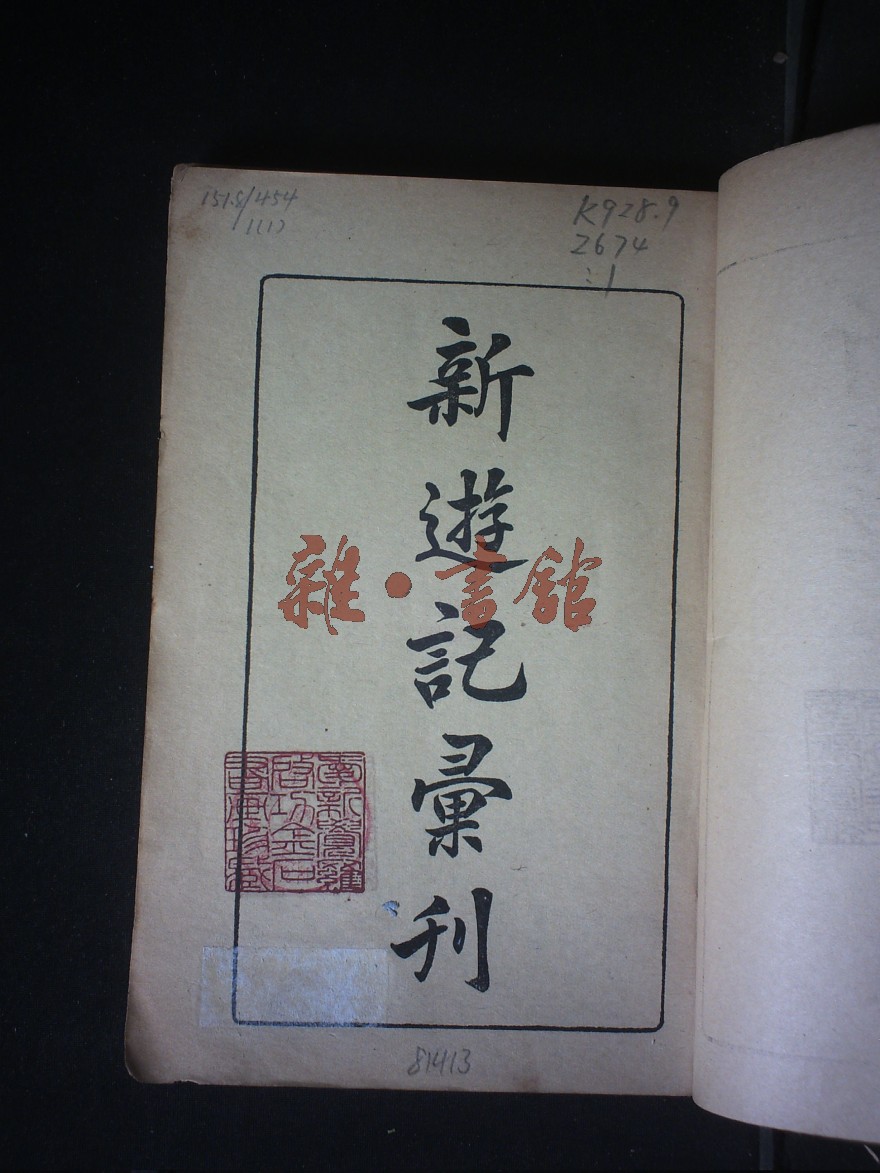 151.8/454
1(1)
K928.9
Z674
:1
新遊記彙刊
雜·書館
81413